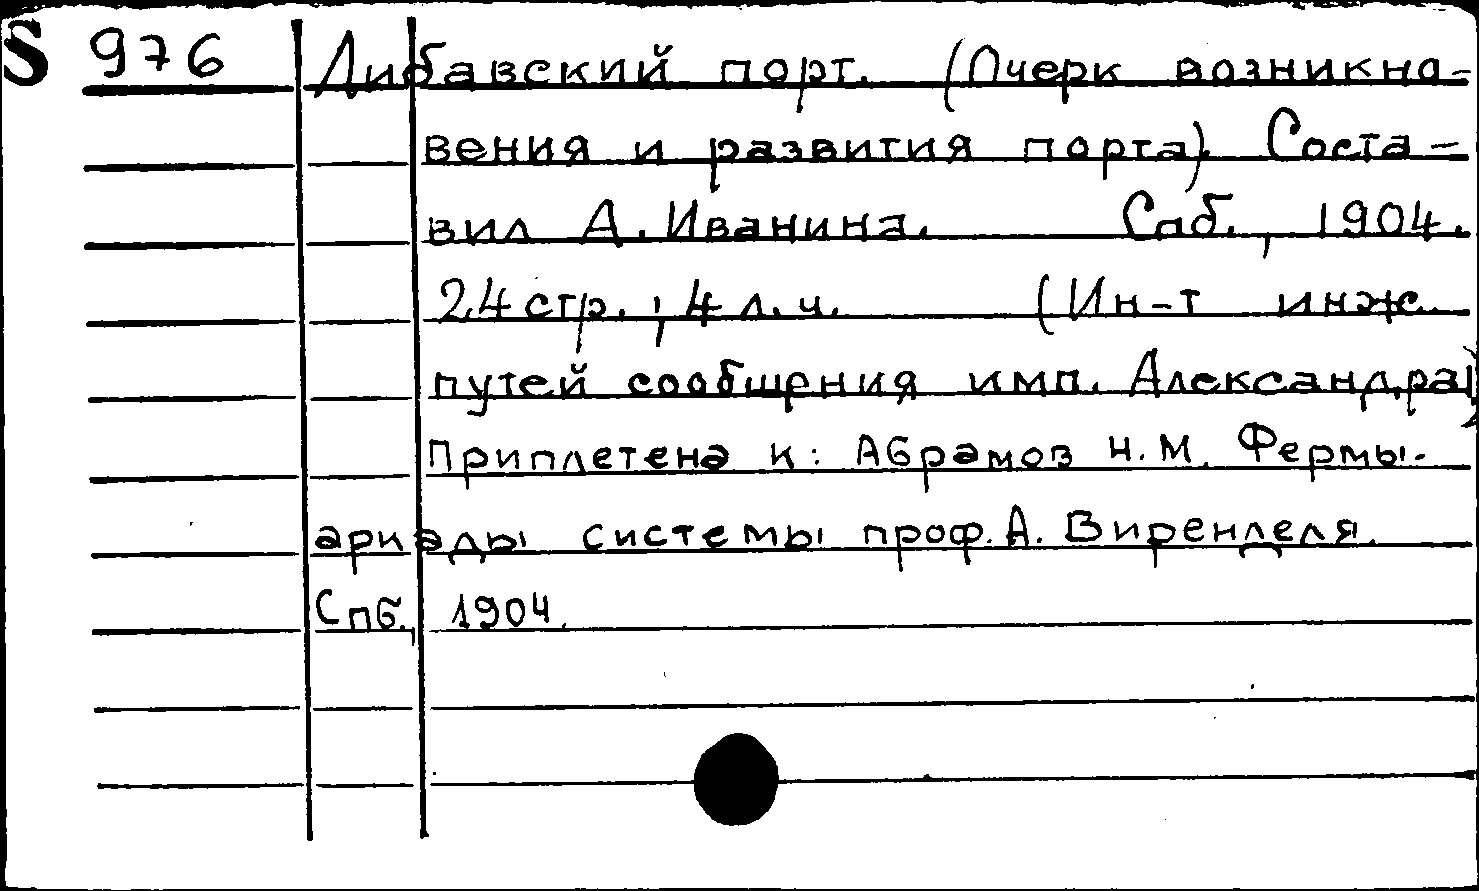 S 976 Либавский порт. (Очерк возникно-
вения и развития порта). Соста-
вил А. Иванина. Спб., 1904.
24 стр.; 4 л. ч. (Ин-т инж.
путей сообщрния имп. Александра I)
Приплетена к: Абрамов Н.М. Фермы-
аркады системы проф. А. Виренделя.
Спб., 1904.